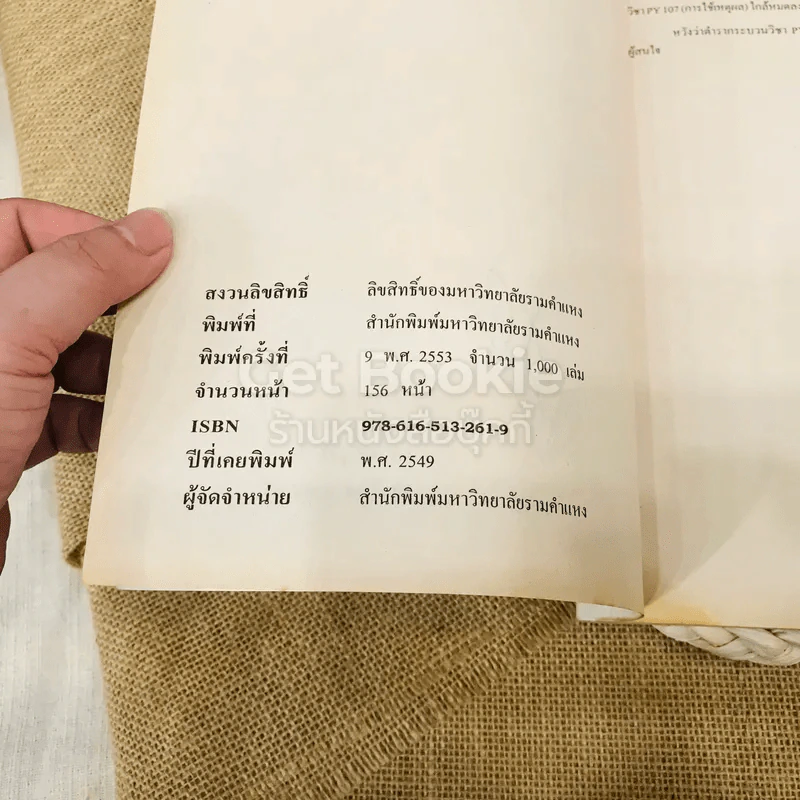 สงวนลิขสิทธิ์ ลิขสิทธิ์ของมหาวิทยาลัยรามคำแหง
พิมพ์ที่ สำนักพิมพ์มหาวิทยาลัยรามคำแหง
พิมพ์ครั้งที่ 9 พ.ศ. 2553 จำนวน 1,000 เล่ม
จำนวนหน้า 156 หน้า
ISBN 978-616-513-261-9
ปีที่เคยพิมพ์ พ.ศ. 2549
ผู้จัดจำหน่าย สำนักพิมพ์มหาวิทยาลัยรามคำแหง
วิชา PY 107 (การใช้เหตุผล) ใกล้หมดลง
หวังว่าตำรากระบวนวิชา PY
ผู้สนใจ
Get Bookie
ร้านหนังสือบุ๊คกี้